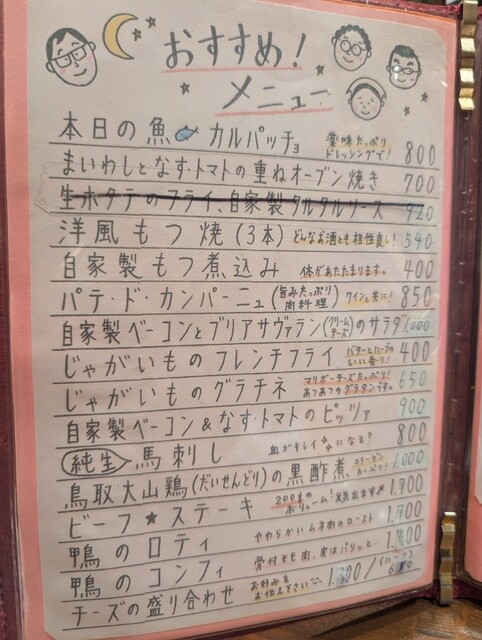 おすすめ！
メニュー
本日の魚 カルパッチョ 薬味たっぷり ドレッシングで！ 800
まいわしとなす・トマトの重ねオーブン焼き 700
生ホタテのフライ、自家製タルタルソース 920
洋風もつ焼(3本) どんなお酒とも相性良し！ 540
自家製もつ煮込み 体があたたまります。 400
パテ・ド・カンパーニュ(旨みたっぷり肉料理) ワインと共に！ 850
自家製ベーコンとブリアサヴァラン(クリームチーズ)のサラダ 1,000
じゃがいものフレンチフライ バターとハーブのいい香り！ 400
じゃがいものグラチネ マリボーチーズたっぷり！あつあつのグラタンです。 650
自家製ベーコン&なす・トマトのピッツァ 900
純生 馬刺し 血がキレイになる？ 800
鳥取大山鶏(だいせんどり)の黒酢煮 コラーゲンたっぷり！ 1,000
ビーフ★ステーキ 200gのボリューム！ 1,900
鴨のロティ やわらかいムネ肉のロースト
鴨のコンフィ 骨付モモ肉、皮はパリッと
チーズの盛り合わせ お好みをお伝え下さい (ハーフ)